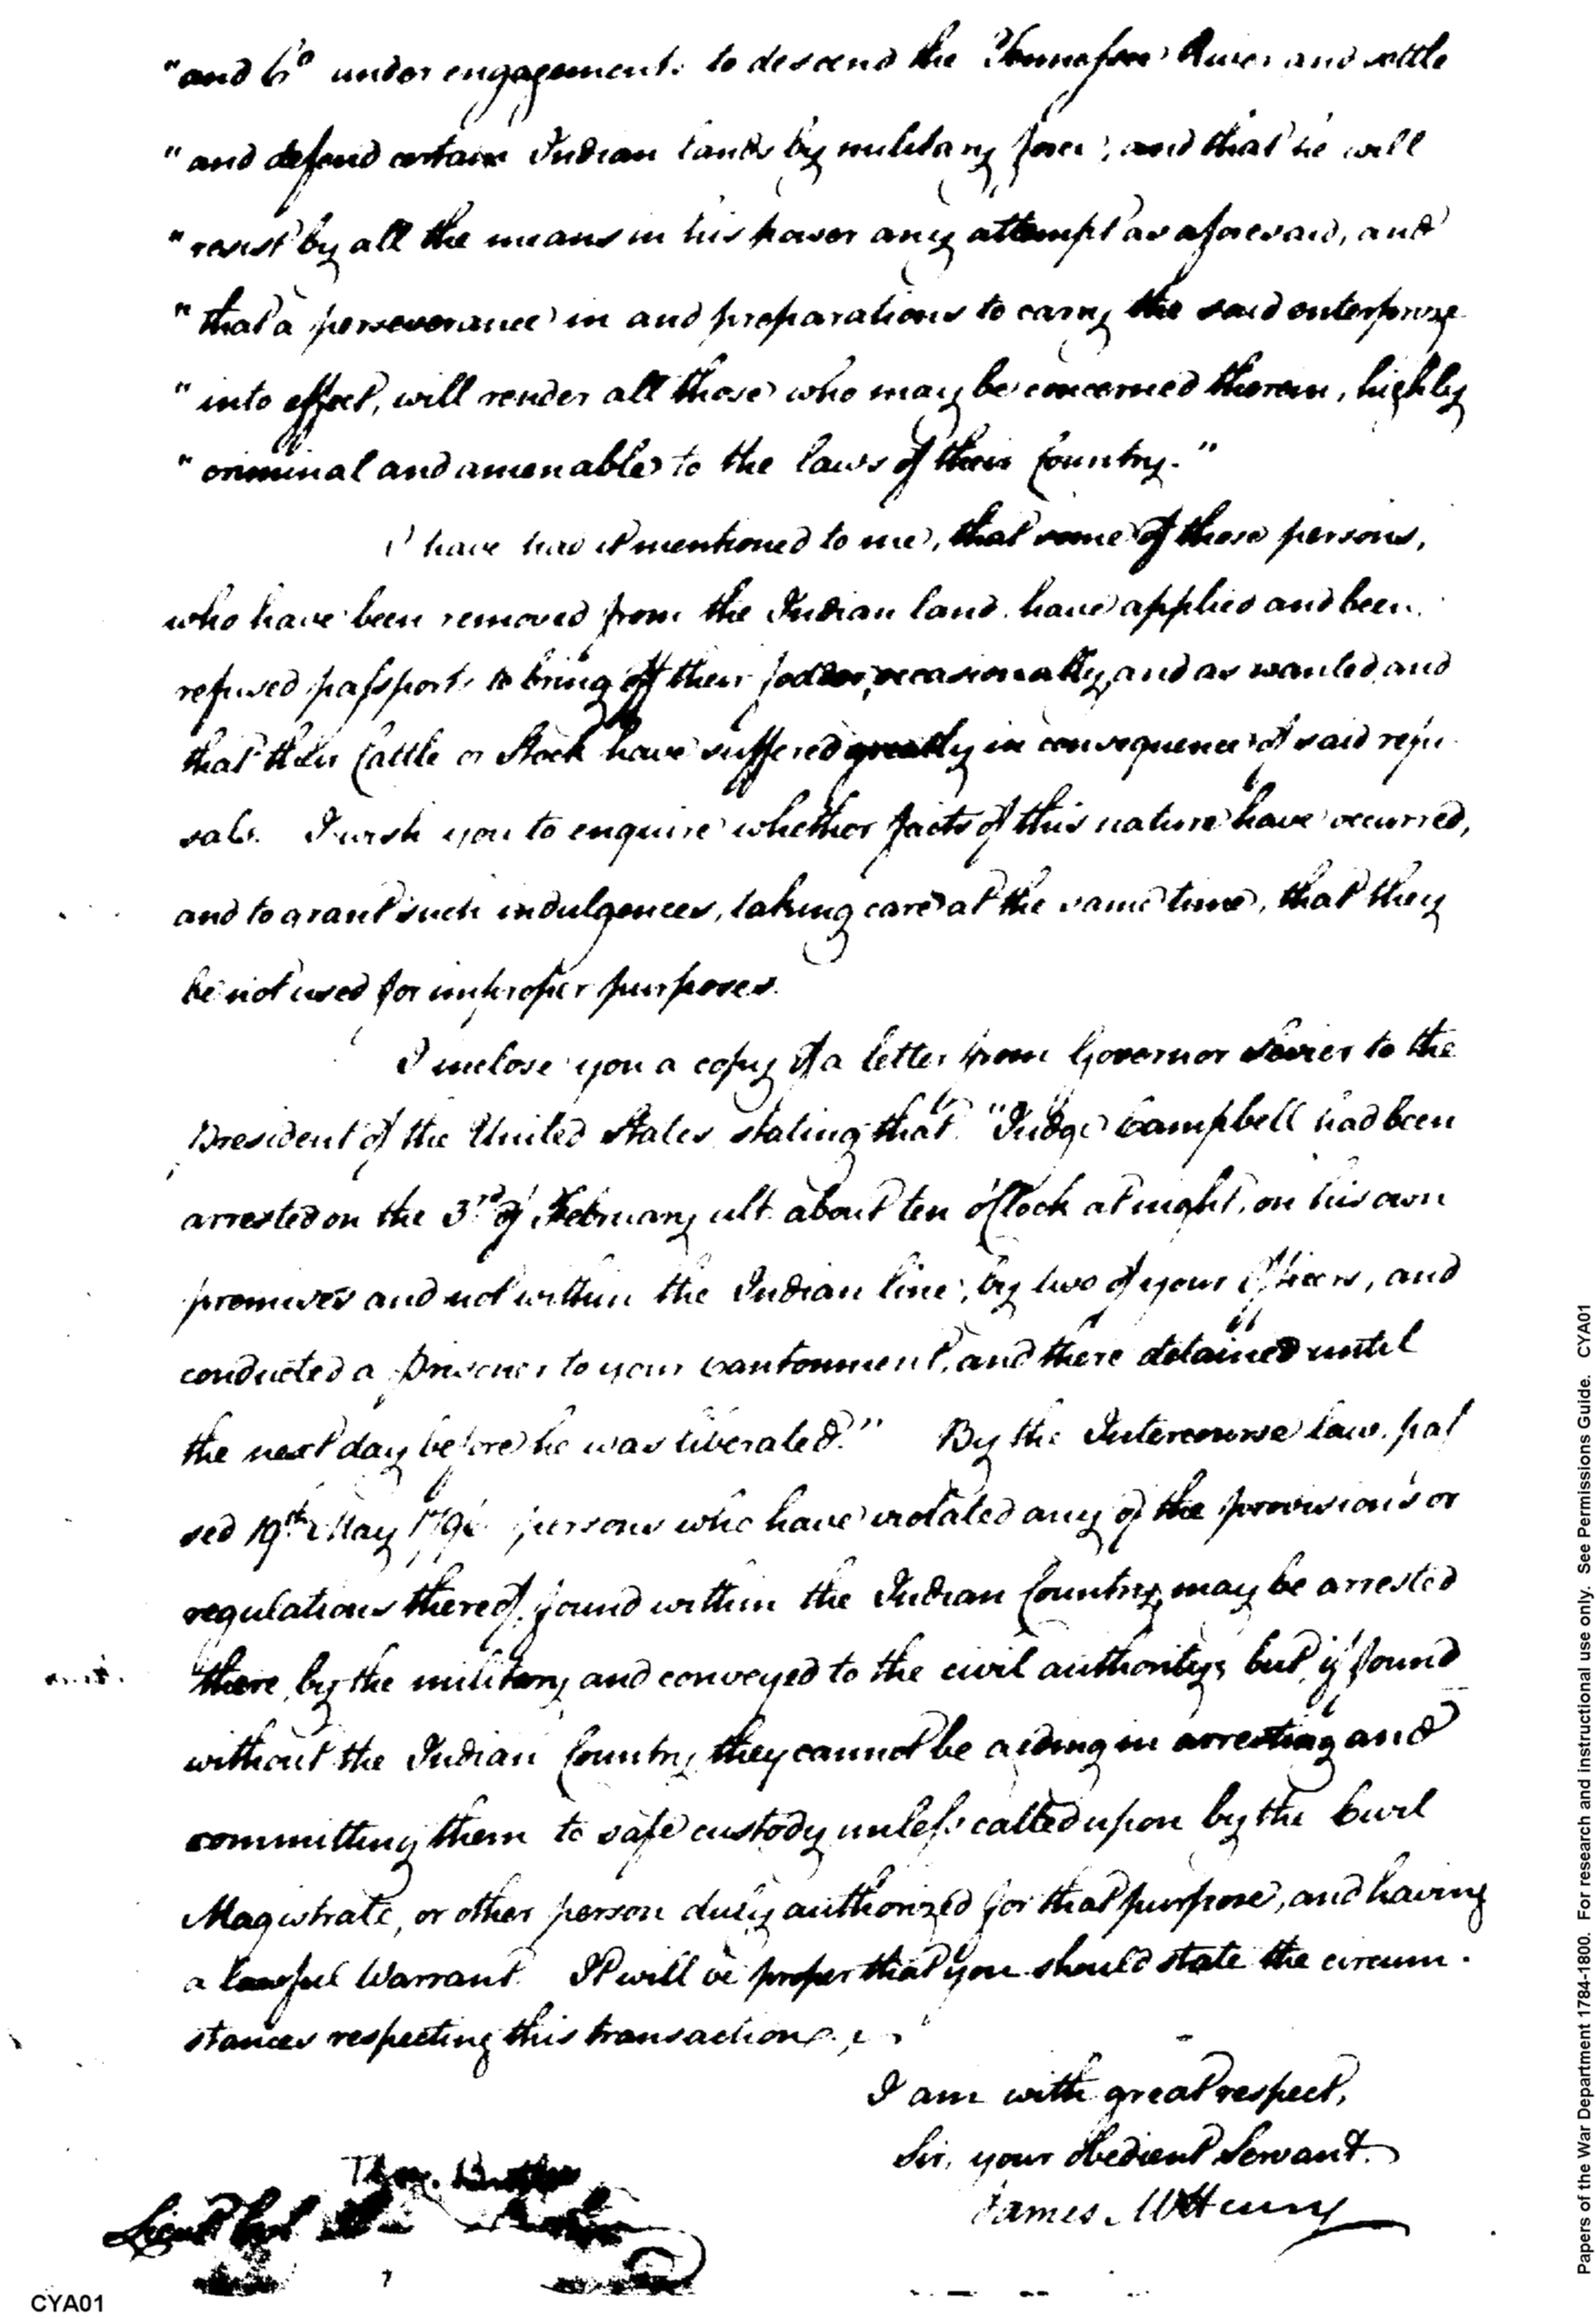 "and Co under engagements to descend the Tennessee River and settle
"and defend certain Indian lands by military force, and that he will
"resist by all the means in his power any attempt as aforesaid, and
"that a perseverance in and preparations to carry the said enterprize
"into effect, will render all those who may be concerned therein, highly
"criminal and amenable to the laws of their Country."
I have had it mentioned to me, that some of those persons,
who have been removed from the Indian land have applied and been
refused passports to bring off their fodder, occasionally, and as wanted and
that their Cattle or Stock have suffered greatly in consequence of said refu-
sals. I wish you to enquire whether facts of this nature have occurred,
and to grant such indulgences, taking care at the same time, that they
be not used for improper purposes.
I inclose you a copy of a letter from Governor Sevier to the
President of the United States stating that "Judge Campbell had been
arrested on the 3rd of February ult. about ten o'Clock at night, on his own
premises and not within the Indian line, by two of your Officers, and
conducted a prisoner to your cantonment, and there detained until
the next day before he was liberated." By the Intercourse law, pas
sed 19th May 1796 persons who have violated any of the provisions or
regulations thereof, found within the Indian Country, may be arrested
there, by the military and conveyed to the civil authority; but, if found
without the Indian Country they cannot be aiding in arresting and
committing them to safe custody unless called upon by the Civil
Magistrate, or other person duly authorized for that purpose, and having
a lawful Warrant. It will be proper that you should state the circum-
stances respecting this transaction.
I am with great respect,
Sir, your obedient Servant.
James McHenry
Thos. Butler
Lieut Col
CYA01
Papers of the War Department 1784-1800. For research and instructional use only. See Permissions Guide. CYA01